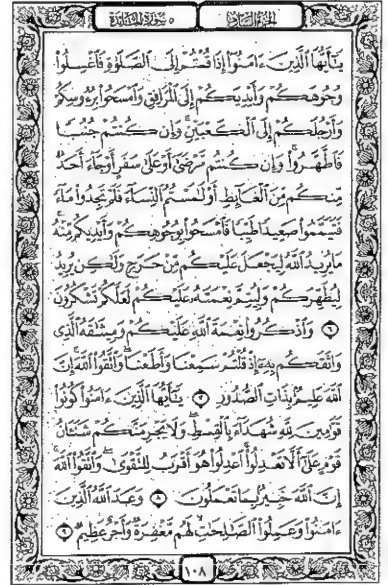 الجزء السادس ٥ سورة المائدة
يَـٰٓأَيُّهَا ٱلَّذِينَ ءَامَنُوٓا۟ إِذَا قُمْتُمْ إِلَى ٱلصَّلَوٰةِ فَٱغْسِلُوا۟
وُجُوهَكُمْ وَأَيْدِيَكُمْ إِلَى ٱلْمَرَافِقِ وَٱمْسَحُوا۟ بِرُءُوسِكُمْ
وَأَرْجُلَكُمْ إِلَى ٱلْكَعْبَيْنِ ۚ وَإِن كُنتُمْ جُنُبًا
فَٱطَّهَّرُوا۟ ۚ وَإِن كُنتُم مَّرْضَىٰٓ أَوْ عَلَىٰ سَفَرٍ أَوْ جَآءَ أَحَدٌ
مِّنكُم مِّنَ ٱلْغَآئِطِ أَوْ لَـٰمَسْتُمُ ٱلنِّسَآءَ فَلَمْ تَجِدُوا۟ مَآءً
فَتَيَمَّمُوا۟ صَعِيدًا طَيِّبًا فَٱمْسَحُوا۟ بِوُجُوهِكُمْ وَأَيْدِيكُم مِّنْهُ ۚ
مَا يُرِيدُ ٱللَّهُ لِيَجْعَلَ عَلَيْكُم مِّنْ حَرَجٍ وَلَـٰكِن يُرِيدُ
لِيُطَهِّرَكُمْ وَلِيُتِمَّ نِعْمَتَهُۥ عَلَيْكُمْ لَعَلَّكُمْ تَشْكُرُونَ
٦ وَٱذْكُرُوا۟ نِعْمَةَ ٱللَّهِ عَلَيْكُمْ وَمِيثَـٰقَهُ ٱلَّذِى
وَاثَقَكُم بِهِۦٓ إِذْ قُلْتُمْ سَمِعْنَا وَأَطَعْنَا ۖ وَٱتَّقُوا۟ ٱللَّهَ ۚ إِنَّ
ٱللَّهَ عَلِيمٌۢ بِذَاتِ ٱلصُّدُورِ ٧ يَـٰٓأَيُّهَا ٱلَّذِينَ ءَامَنُوا۟ كُونُوا۟
قَوَّٰمِينَ لِلَّهِ شُهَدَآءَ بِٱلْقِسْطِ ۖ وَلَا يَجْرِمَنَّكُمْ شَنَـَٔانُ
قَوْمٍ عَلَىٰٓ أَلَّا تَعْدِلُوا۟ ۚ ٱعْدِلُوا۟ هُوَ أَقْرَبُ لِلتَّقْوَىٰ ۖ وَٱتَّقُوا۟ ٱللَّهَ ۚ
إِنَّ ٱللَّهَ خَبِيرٌۢ بِمَا تَعْمَلُونَ ٨ وَعَدَ ٱللَّهُ ٱلَّذِينَ
ءَامَنُوا۟ وَعَمِلُوا۟ ٱلصَّـٰلِحَـٰتِ ۙ لَهُم مَّغْفِرَةٌ وَأَجْرٌ عَظِيمٌ ٩
١٠٨